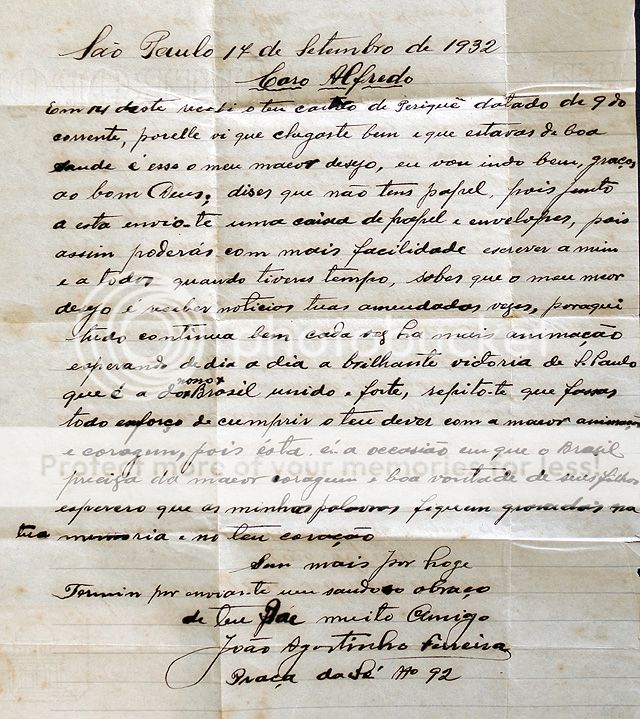 São Paulo 14 de Setembro de 1932
Caro Alfredo
Em 14 deste recebi o teu cartão de Periquê datado de 9 do
corrente, por elle vi que chegaste bem e que estavas de boa
saude é esse o meu maior desejo, eu vou indo bem, graças
ao bom Deus, dises que não tens papel, pois junto
a esta envio-te uma caixa de papel e envelopes, pois
assim poderás com mais facilidade escrever a mim
e a todos quando tiveres tempo, sabes que o meu maior
desejo é receber noticias tuas amendadas vezes, por aqui
tudo continua bem cada vez ha mais animação
esperando de dia a dia a brilhante victoria de S. Paulo
que é a do nono Brasil unido e forte, repito-te que faças
todo esforço de cumprir o teu dever com a maior
e coragem, pois ésta é a occasião em que o Brasil
precisa da maior coragem e boa vontade de seus filhos
espero que as minhas palavras fiquem gravadas na
tua memoria e no teu coração
Sem mais por hoje
Termin por enviar-te um saudoso abraço
de teu Pae muito Amigo
João Agostinho Ferreira
Praça da Sé Nº 92
Protect more of your memories for less!